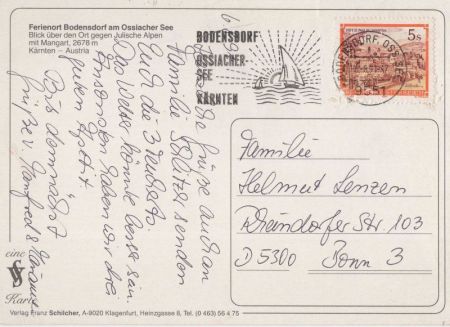 Ferienort Bodensdorf am Ossiacher See
Blick über den Ort gegen Julische Alpen
mit Mangart, 2678 m
Kärnten – Austria
BODENSDORF
OSSIACHER-
SEE
KÄRNTEN
5 S
9551
Grüße auch an
Familie Schlitzer senden
Euch die 3 Neubert
Das Wetter könnte besser sein
Ansonsten haben wir drei
guten Appetit.
Bis demnächst
Grüße v. Manfred &
Familie
Helmut Lenzen
Rheindorfer Str 103
D 5300 Bonn 3
eine
Karte
Verlag Franz Schilcher, A-9020 Klagenfurt, Heinzgasse 8, Tel. (0 463) 56 4 75